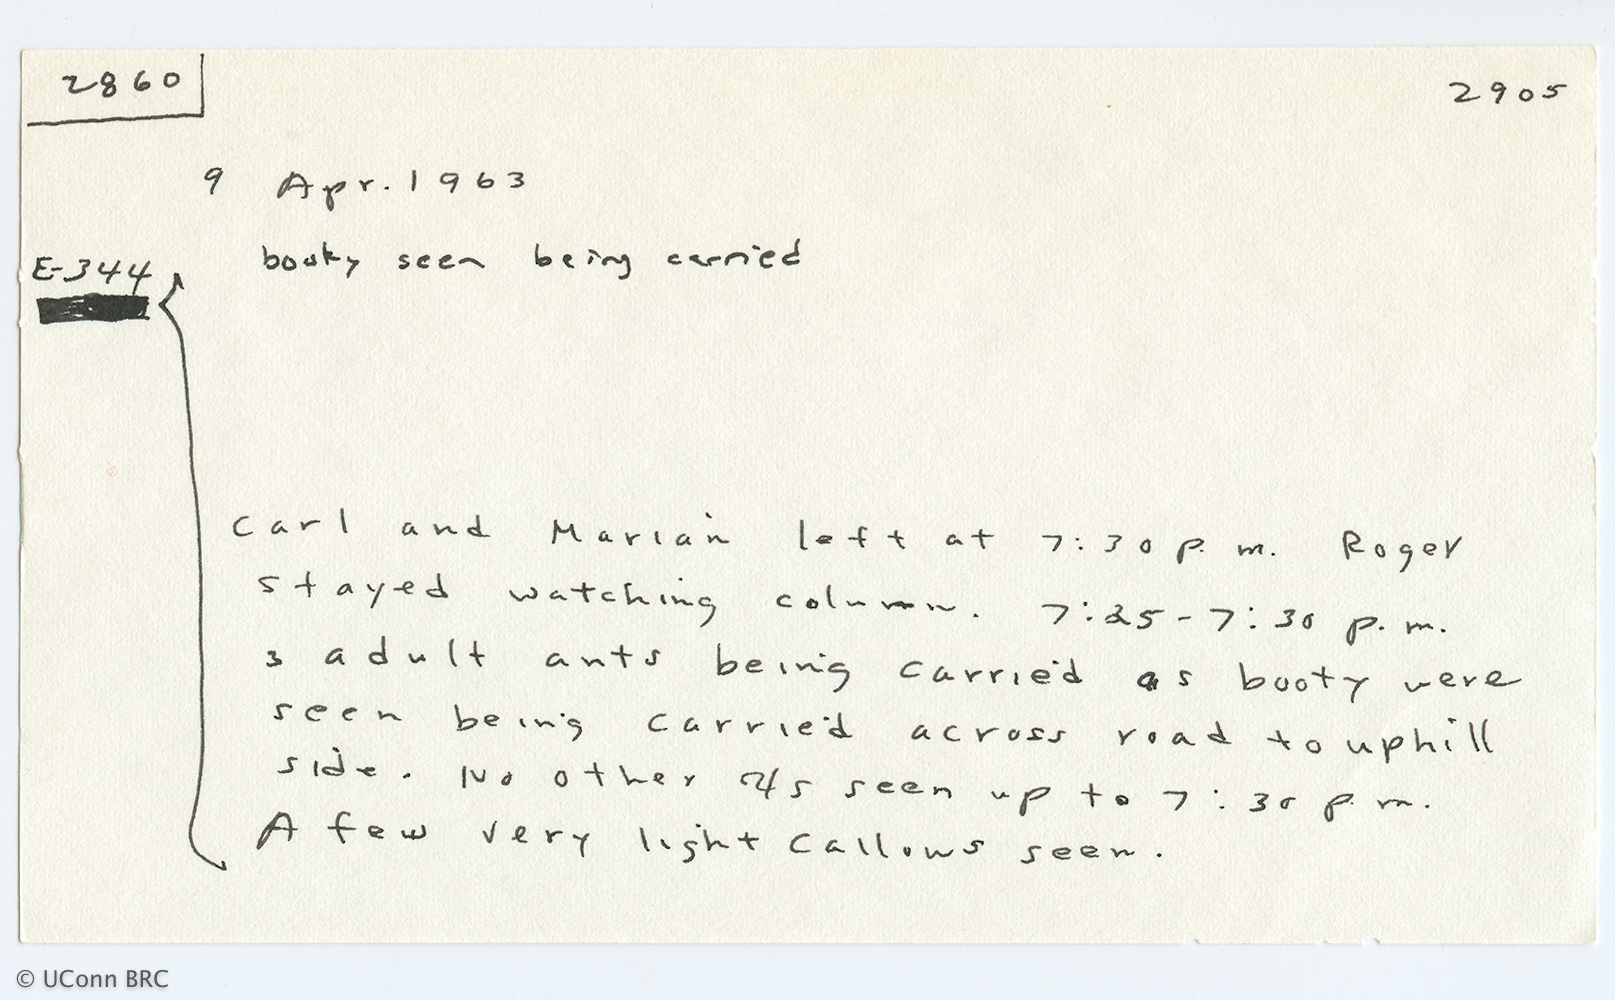 2860
2905
9 Apr. 1963
E-344
booty seen being carried
Carl and Marian left at 7:30 p.m. Roger
stayed watching column. 7:25-7:30 p.m.
3 adult ants being carried as booty were
seen being carried across road to uphill
side. No other seen up to 7:30 p.m.
A few very light callows seen.
© UConn BRC